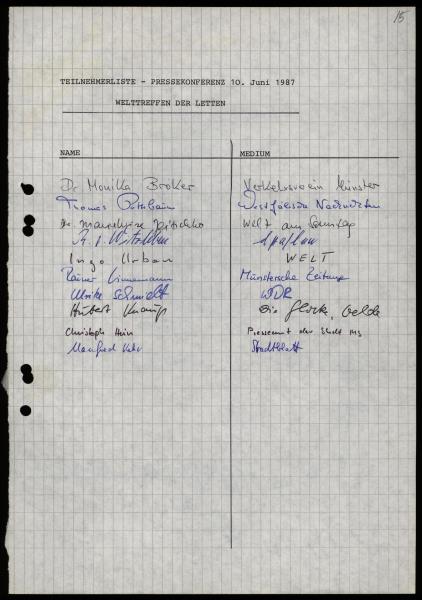 15
TEILNEHMERLISTE - PRESSEKONFERENZ 10. Juni 1987
WELTTREFFEN DER LETTEN
NAME MEDIUM
Dr. Monika Bröker Verkehrsverein Münster
Thomas Westfälische Nachrichten
Dr. Welt am Sonntag
Ingo Urban WELT
Rainer Linnemann Münstersche Zeitung
Ulrike Schmidt WDR
Hubert Die Glocke, Oelde
Christoph Hein Presseamt der Stadt MS
Manfred Stadtblatt